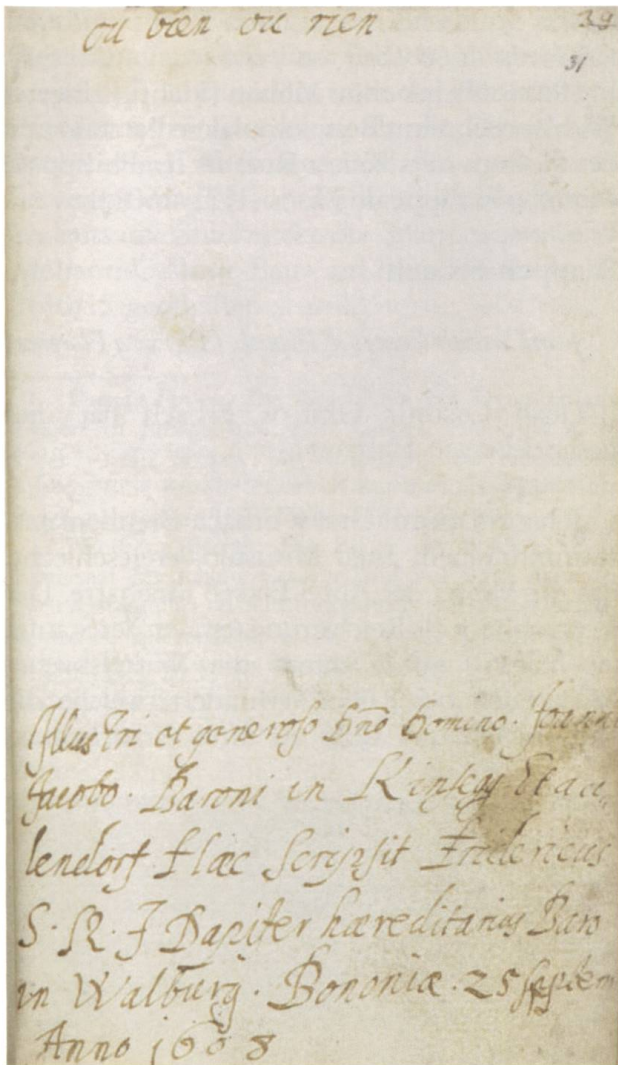 ou bien ou rien
39
31
Illustri et generoso Dnō Domino. Joanni
Jacobo. Baroni in
lendorf. Hæc Scripsit Fridericus
S. R. J Dapifer hæreditarius Baro
in Walburg. Bononiæ. 25 Septem
Anno 1608